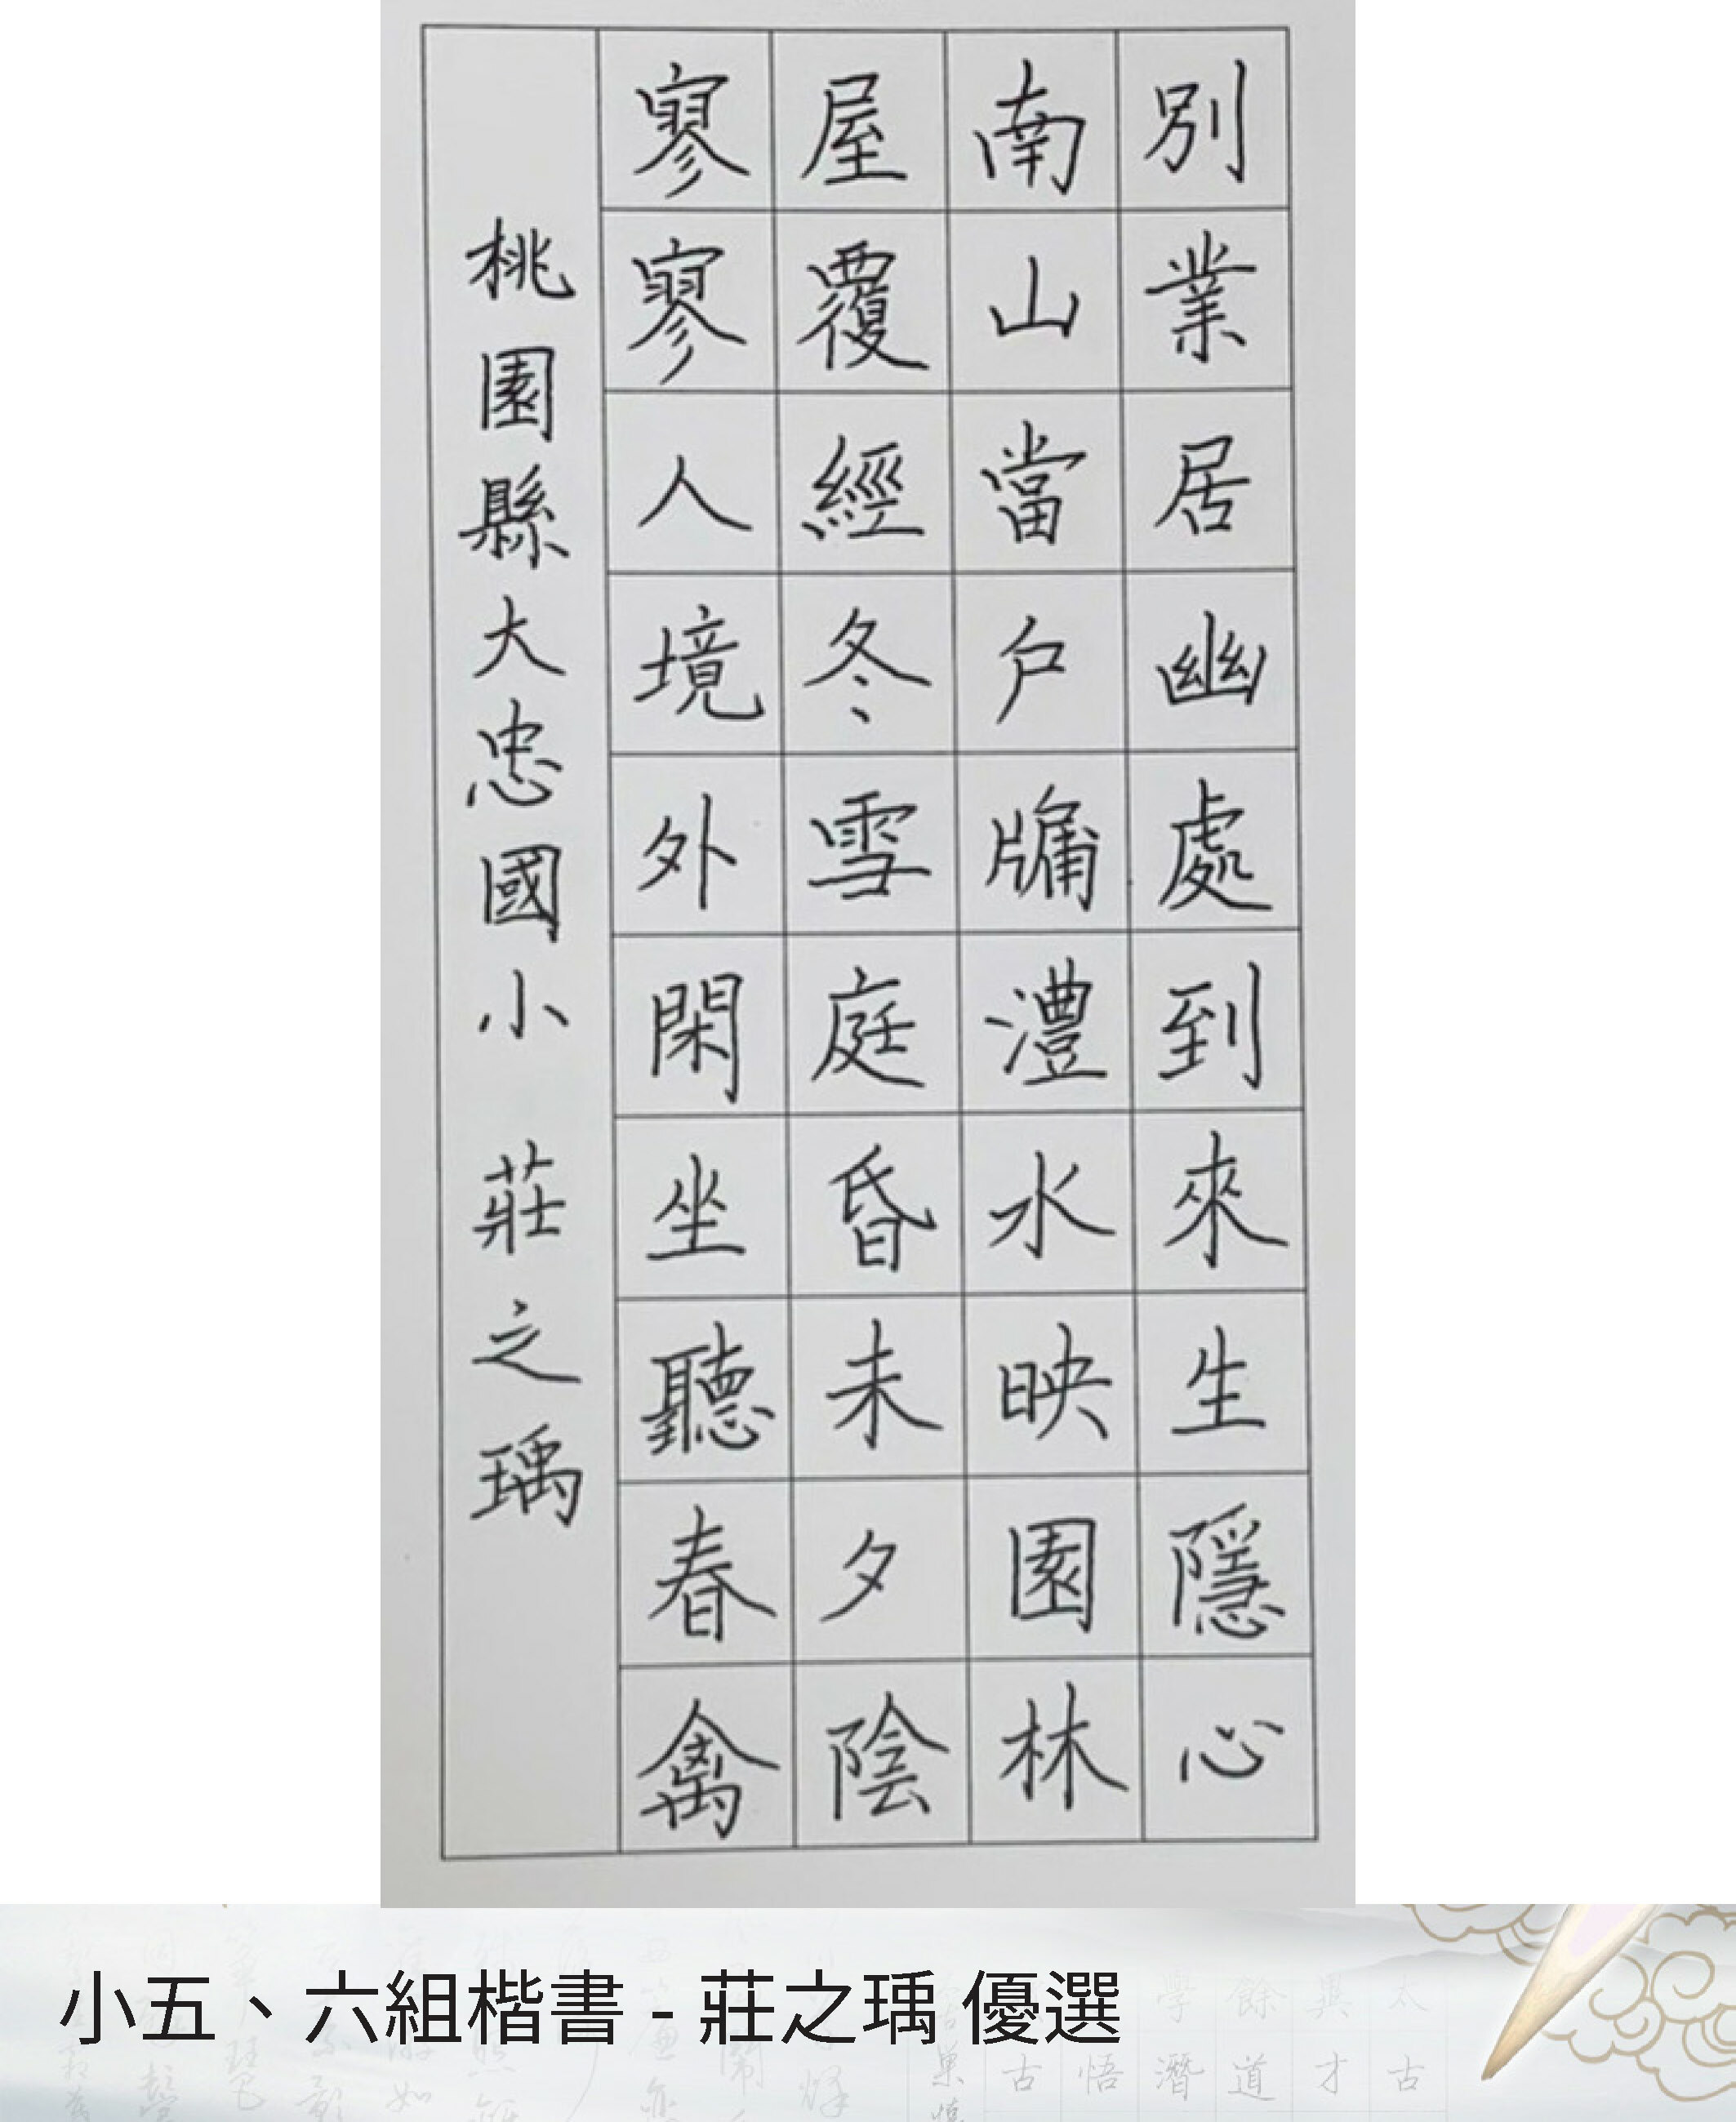 別業居幽處到來生隱心
南山當戶牖澧水映園林
屋覆經冬雪庭昏未夕陰
寥寥人境外閑坐聽春禽
桃園縣大忠國小 莊之瑀
小五、六組楷書 - 莊之瑀 優選